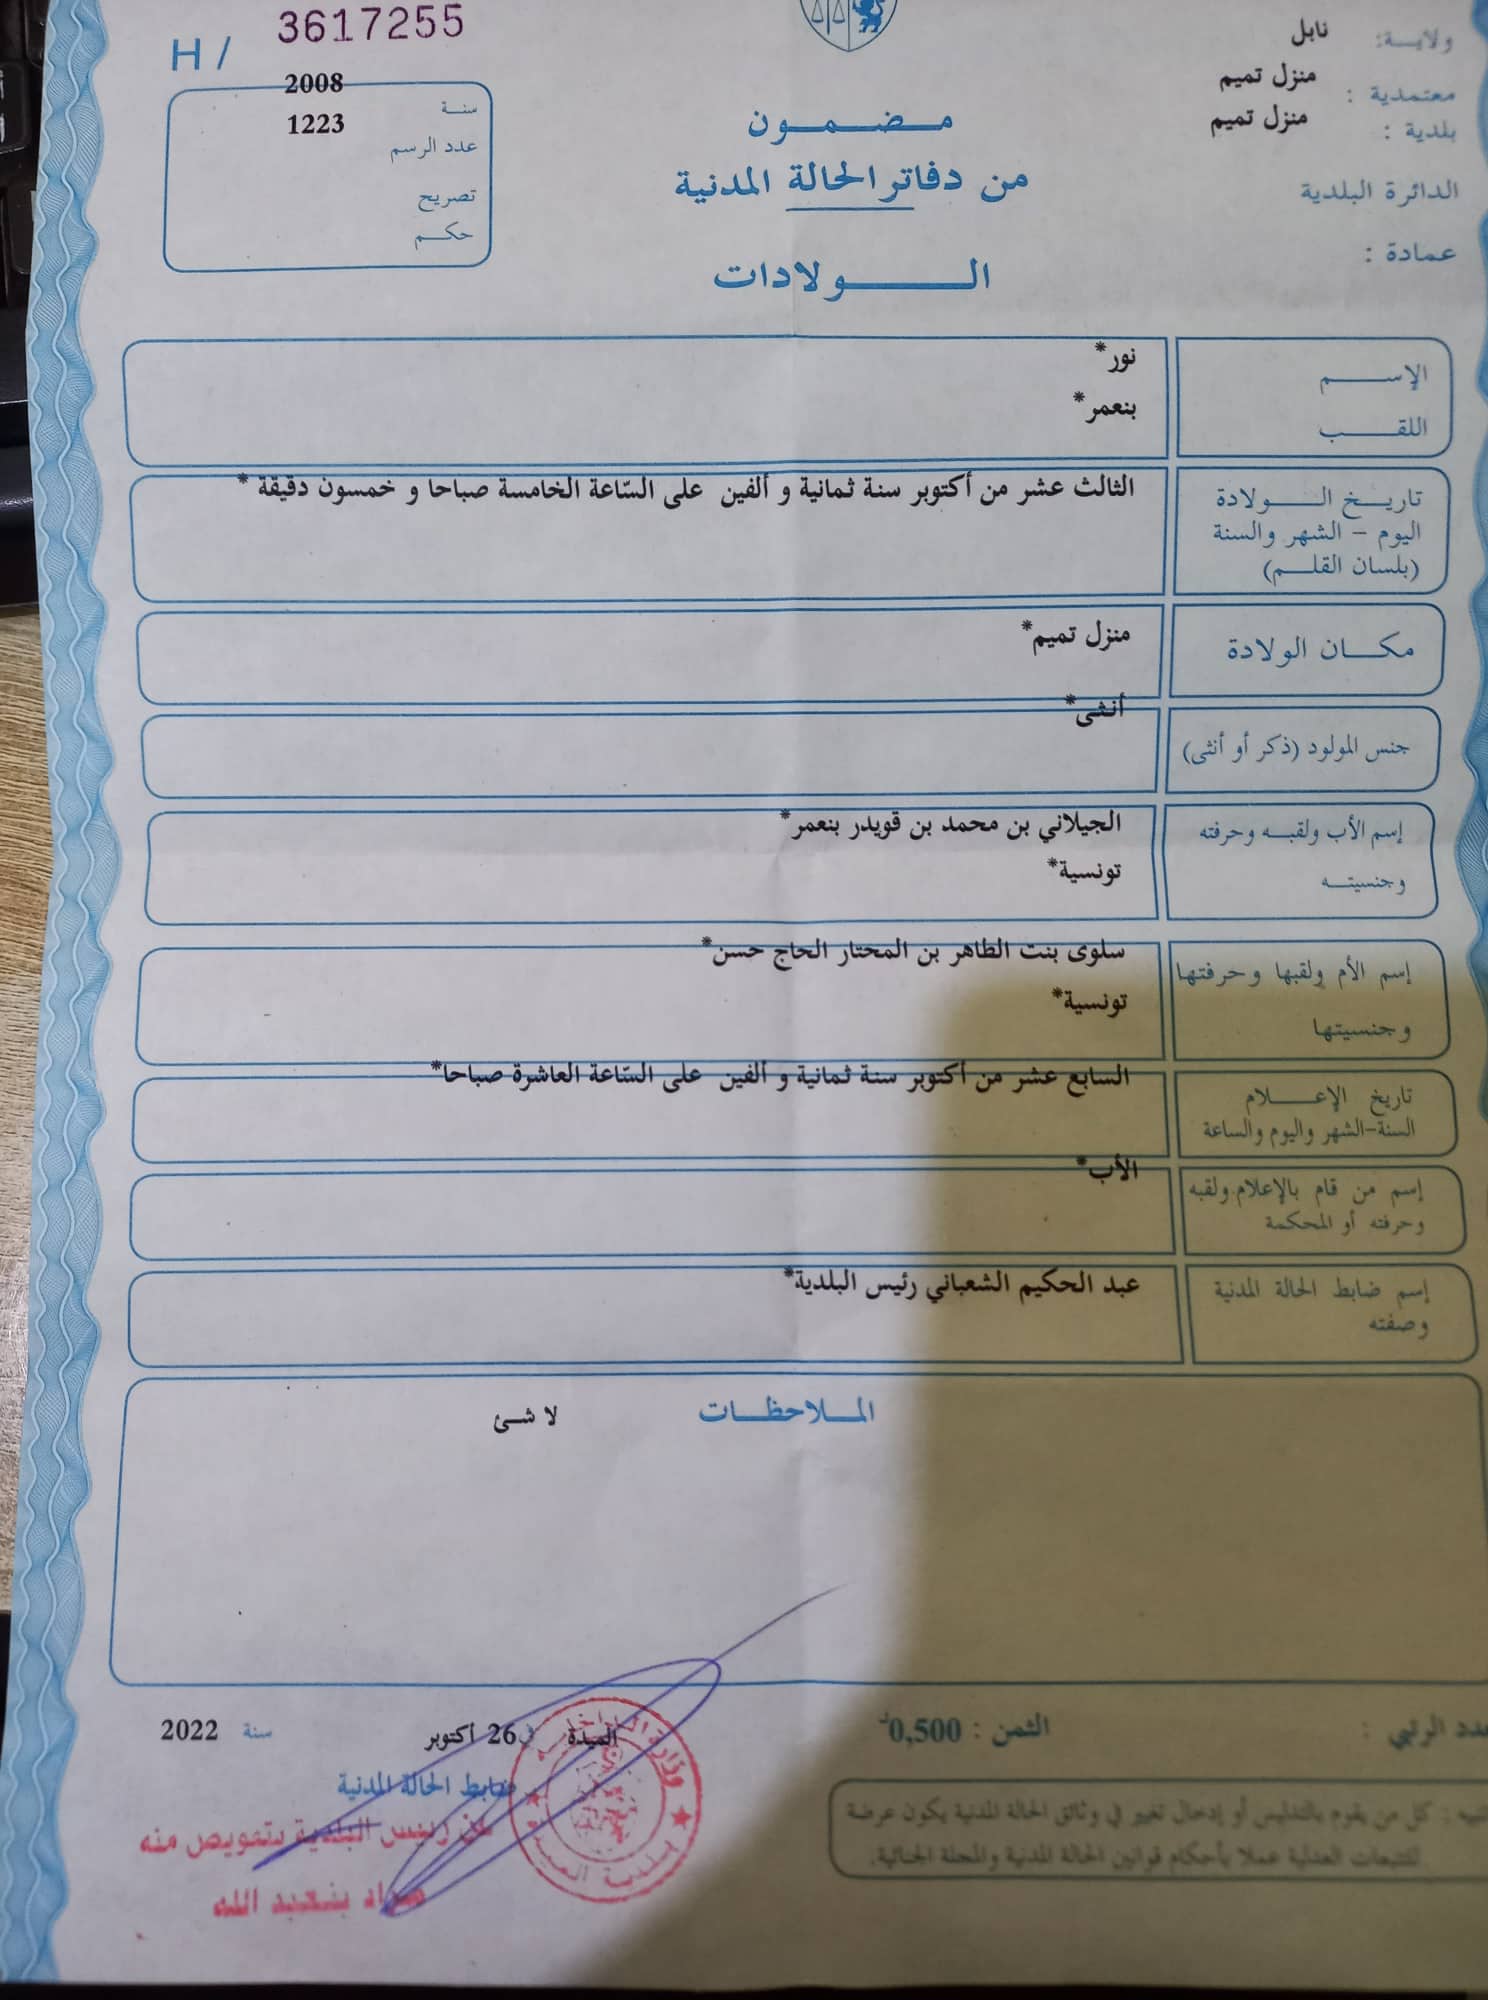 H / 3617255
ولايـــة: نابل
معتمدية : منزل تميم
بلدية : منزل تميم
الدائرة البلدية
عمادة :
سنــة 2008
عدد الرسم 1223
تصريح
حكــم
مـضـمـون
من دفاتر الحالة المدنية
الـولادات
الإســـم نور*
اللقــب بنعمر*
تاريـخ الـــولادة الثالث عشر من أكتوبر سنة ثمانية و ألفين على السّاعة الخامسة صباحا و خمسون دقيقة *
اليوم – الشهر والسنة
(بلسان القلــم)
مكــان الولادة منزل تميم*
جنس المولود (ذكر أو أنثى) أنثى*
إسم الأب ولقبــه وحرفته الجيلاني بن محمد بن قويدر بنعمر*
وجنسيتــه تونسية*
إسم الأم ولقبها وحرفتها سلوى بنت الطاهر بن المختار الحاج حسن*
وجنسيتها تونسية*
تاريخ الإعــــلام السابع عشر من أكتوبر سنة ثمانية و ألفين على السّاعة العاشرة صباحا*
السنة-الشهر واليوم والساعة
إسم من قام بالإعلام ولقبه الأب*
وحرفته أو المحكمة
إسم ضابط الحالة المدنية عبد الحكيم الشعباني رئيس البلدية*
وصفته
الملاحظــات لا شئ
عدد الرتبي : الثمن : 0,500د
الميدة في 26 أكتوبر سنة 2022
ضابط الحالة المدنية
عن رئيس البلدية بتفويض منه
مراد بنعبد الله
وزارة الداخلية
بلدية الميدة
تنبيه : كل من يقوم بالتدليس أو إدخال تغيير في وثائق الحالة المدنية يكون عرضة
للتتبعات العدلية عملا بأحكام قوانين الحالة المدنية والمجلة الجنائية.